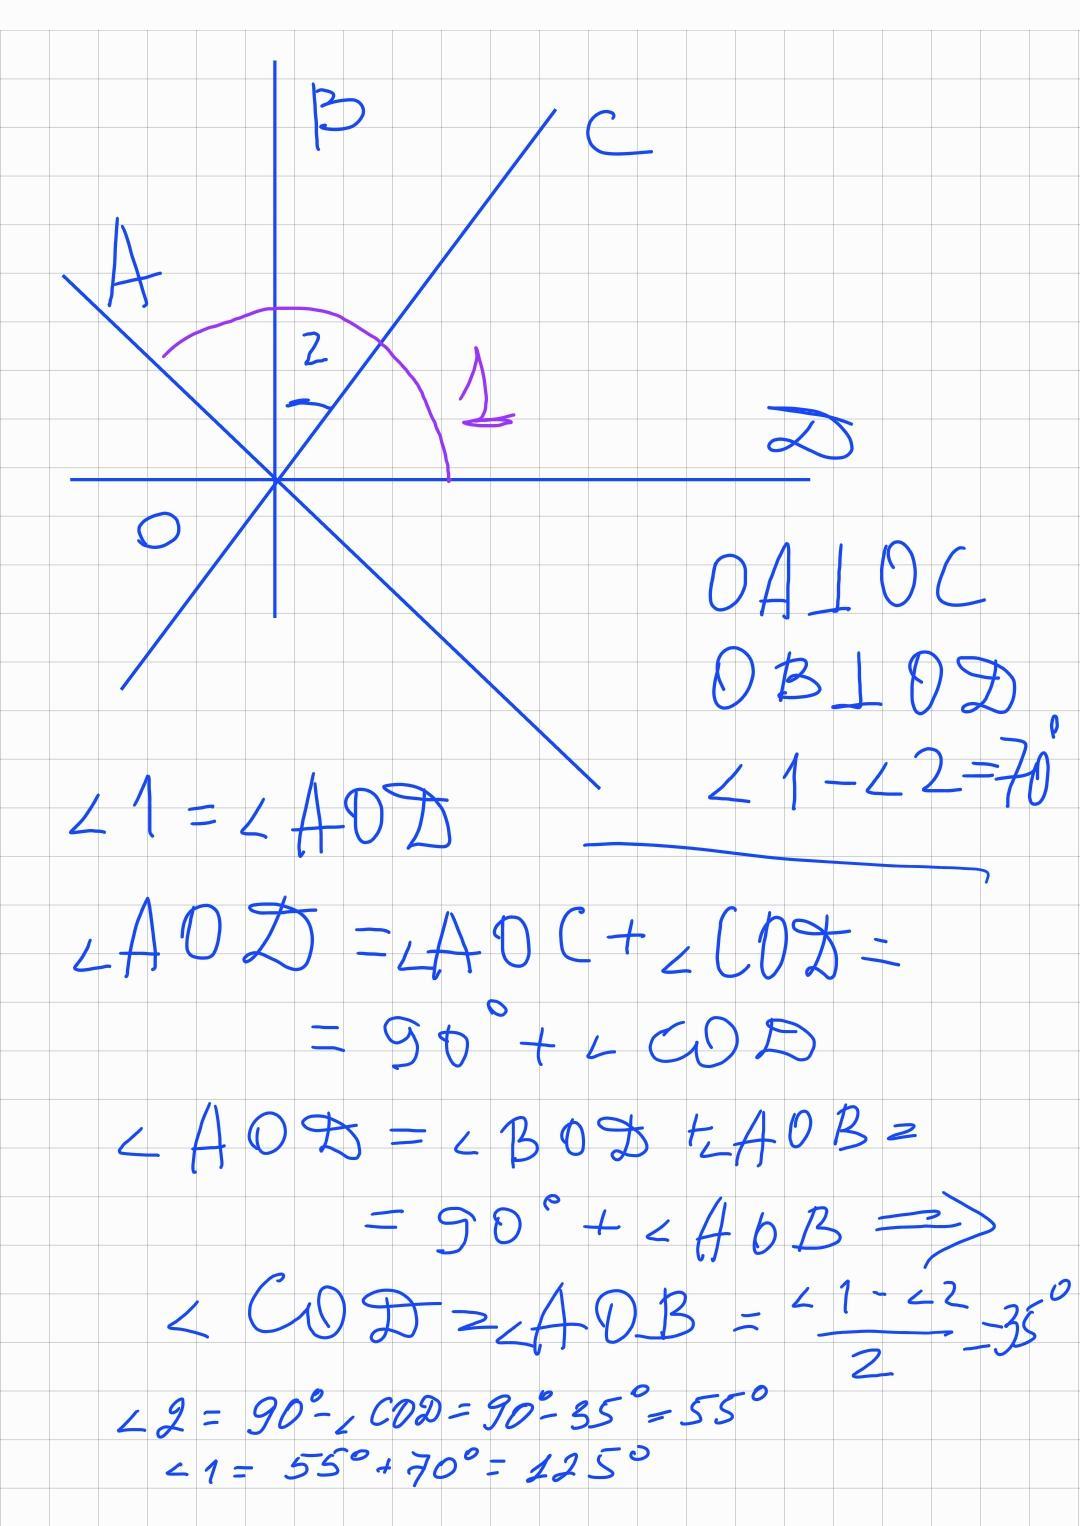 B
C
A
2
1
D
O
OA⊥OC
OB⊥OD
∠1-∠2=70°
∠1=∠AOD
∠AOD=∠AOC+∠COD=
=90°+∠COD
∠AOD=∠BOD+∠AOB=
=90°+∠AOB⇒
∠COD=∠AOB=(∠1-∠2)/2=35°
∠2=90°-∠COD=90°-35°=55°
∠1=55°+70°=125°